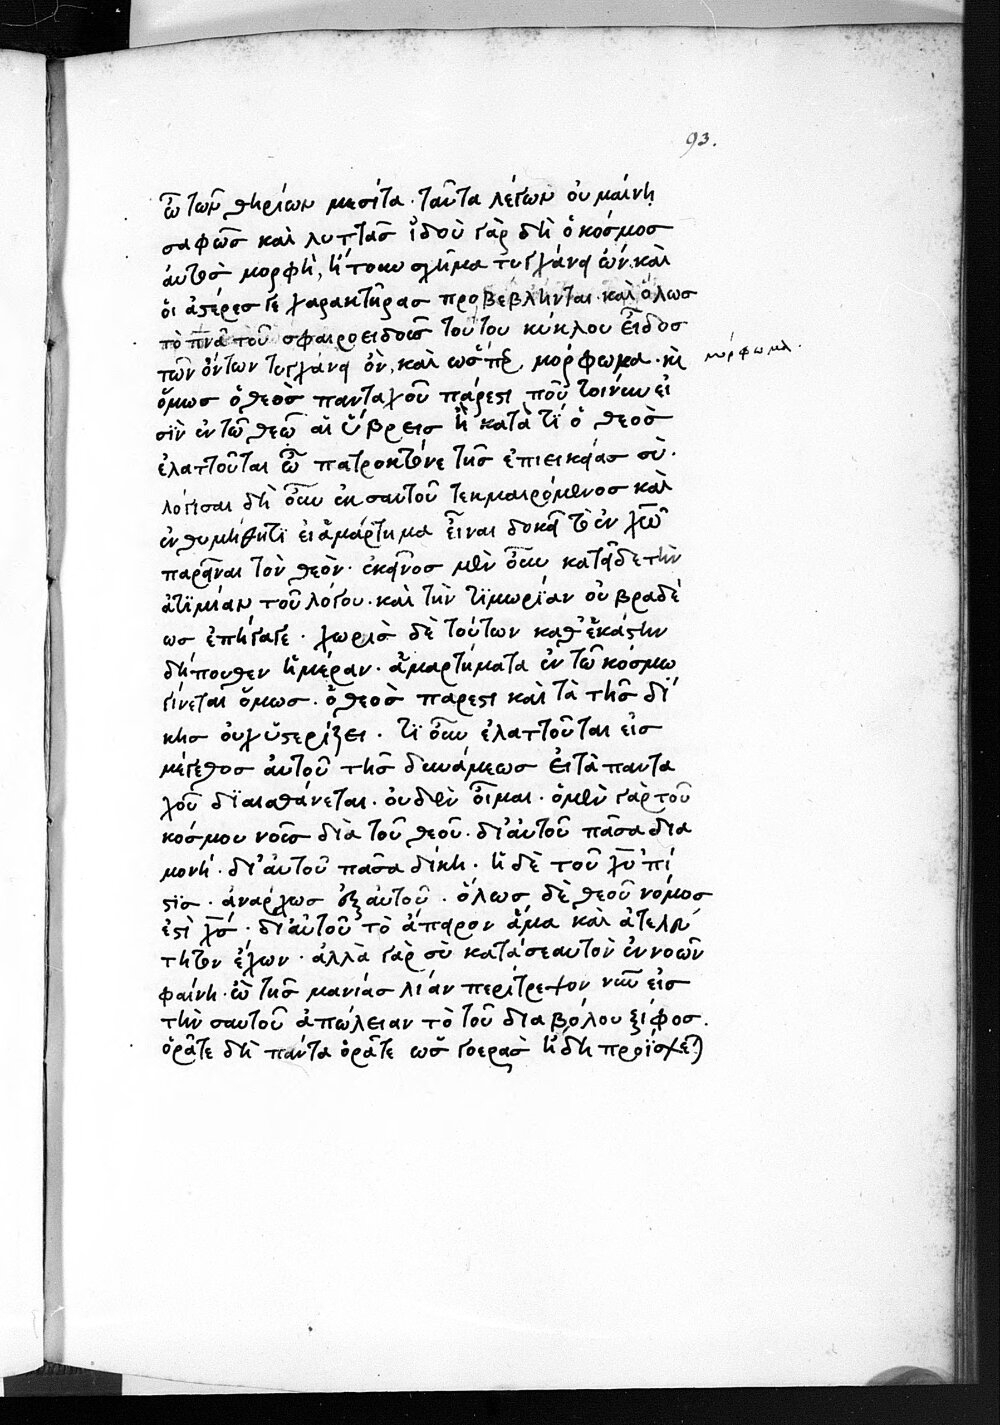 93.
ὦ τῶν θηρίων μεσίτα · ταῦτα λέγων οὐ μαίνη
σαφῶσ καὶ λυττᾶσ ἰδοὺ γὰρ δὴ ὁ κόσμοσ
ἀυτὸσ μορφὴ, ἤτοιν σχῆμα τυγχάνει ὢν. καὶ
ὁι ἀστέρεσ γε χαρακτῆρασ προβέβληνται · καὶ ὅλωσ
τὸ πνα τοῦ σφαιροειδοῦσ τούτου κύκλου εἶδοσ
τῶν ὄντων τυγχάνει ὄν, καὶ ὡσπερ μόρφωμα · κὶ
μόρφωμα.
ὅμωσ ὁ θεὸσ πανταχοῦ πάρεστι ποῦ τοίνυν εἰ
σὶν ἐν τῶ θεῶ αἱ ὕβρεισ ἢ κατὰ τί ὁ θεὸσ
ἐλαττοῦται ὦ πατροκτόνε τῆσ ἐπιεικείασ σὺ.
λόγισαι δὴ οὖν ἐκ σαυτοῦ τεκμαιρόμενοσ καὶ
ἐνθυμήθητι εἰ ἁμάρτημα εἶναι δοκεῖ τὸ ἐν χῶ
παρεῖναι τὸν θεὸν · ἐκεῖνοσ μὲν οὖν κατεῖδε τὴν
ἀτιμίαν τοῦ λόγου · καὶ τὴν τιμωρίαν οὐ βραδέ
ωσ ἐπήγαγε · χωρὶσ δὲ τούτων καθ' ἑκάστην
δήπουθεν ἡμέραν · ἁμαρτήματα ἐν τῶ κόσμω
γίνεται ὅμωσ · ὁ θεὸσ παρεστι καὶ τὰ τῆσ δί
κησ οὐχ ὑστερίζει · τί οὖν ἐλαττοῦται εἰσ
μέγεθοσ ἀυτοῦ τῆσ δυνάμεωσ ἐι τὰ παντα
χοῦ διαισθάνεται · ὀυδὲν οἶμαι · ὁ μὲν γὰρ τοῦ
κόσμου νοῦσ διὰ τοῦ θεοῦ · δι' ἀυτοῦ πᾶσα δια
μονή · δι' ἀυτοῦ πᾶσα δίκη · ἡ δὲ τοῦ χυ πί
στισ · ἀνάρχωσ ἐξ αυτοῦ · ὅλωσ δὲ θεοῦ νόμοσ
ἐστὶ χσ · δι' ἀυτοῦ τὸ ἄπειρον ἅμα καὶ ἀτελεύ
τητον ἔχων · ἀλλὰ γὰρ σὺ κατὰ σεαυτὸν ἐννοῶν
φαίνη · ὦ τῆσ μανίασ λίαν περίτρεψον νῦν εἰσ
τὴν σαυτοῦ ἀπώλειαν τὸ τοῦ διαβόλου ξίφοσ.
ὁρᾶτε δὴ πάντα ὁρᾶτε ὡσ γοερὰσ ἤδη προΐσχε